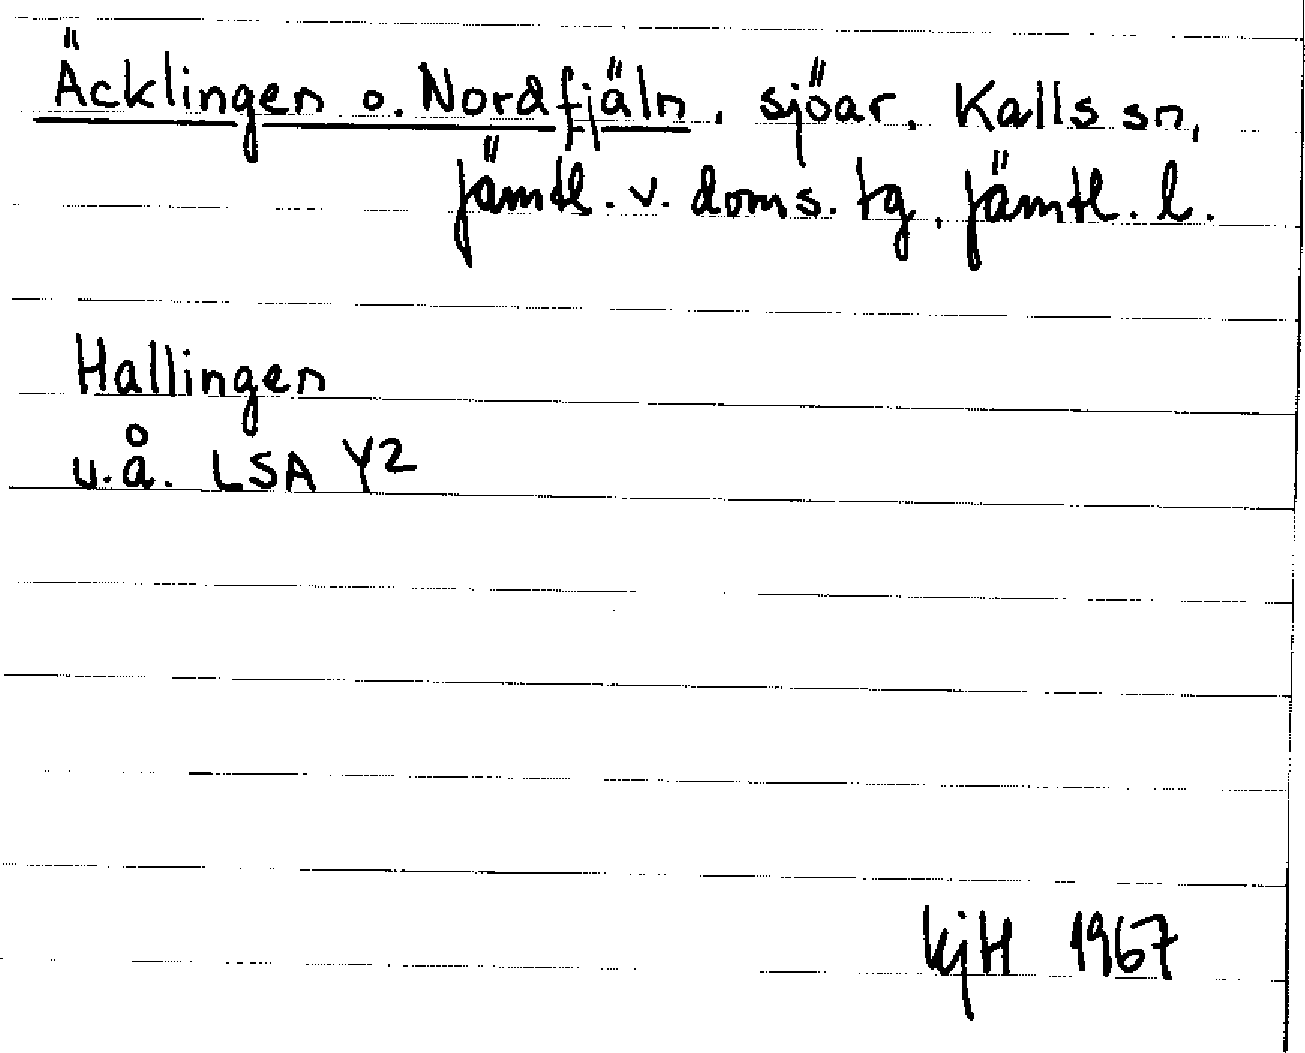 Äcklingen o. Nordfjäln, sjöar, Kalls sn,
Jämtl. v. doms. tg, Jämtl. l.
Hallingen
u.å. LSA Y2
KjH 1967